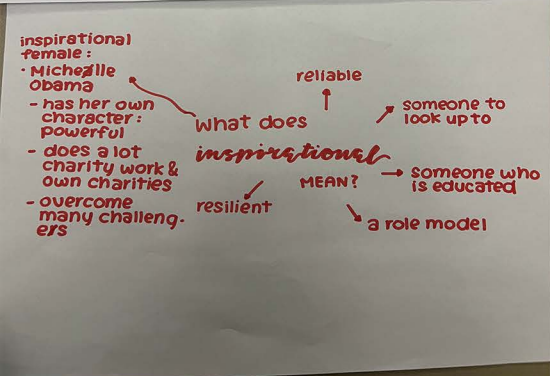 inspirational
female:
· Michealle
obama
- has her own
character:
powerful
- does a lot
charity work &
own charities
- overcome
many challeng-
ers
What does
inspirational
MEAN?
reliable
someone to
look up to
someone who
is educated
a role model
resilient